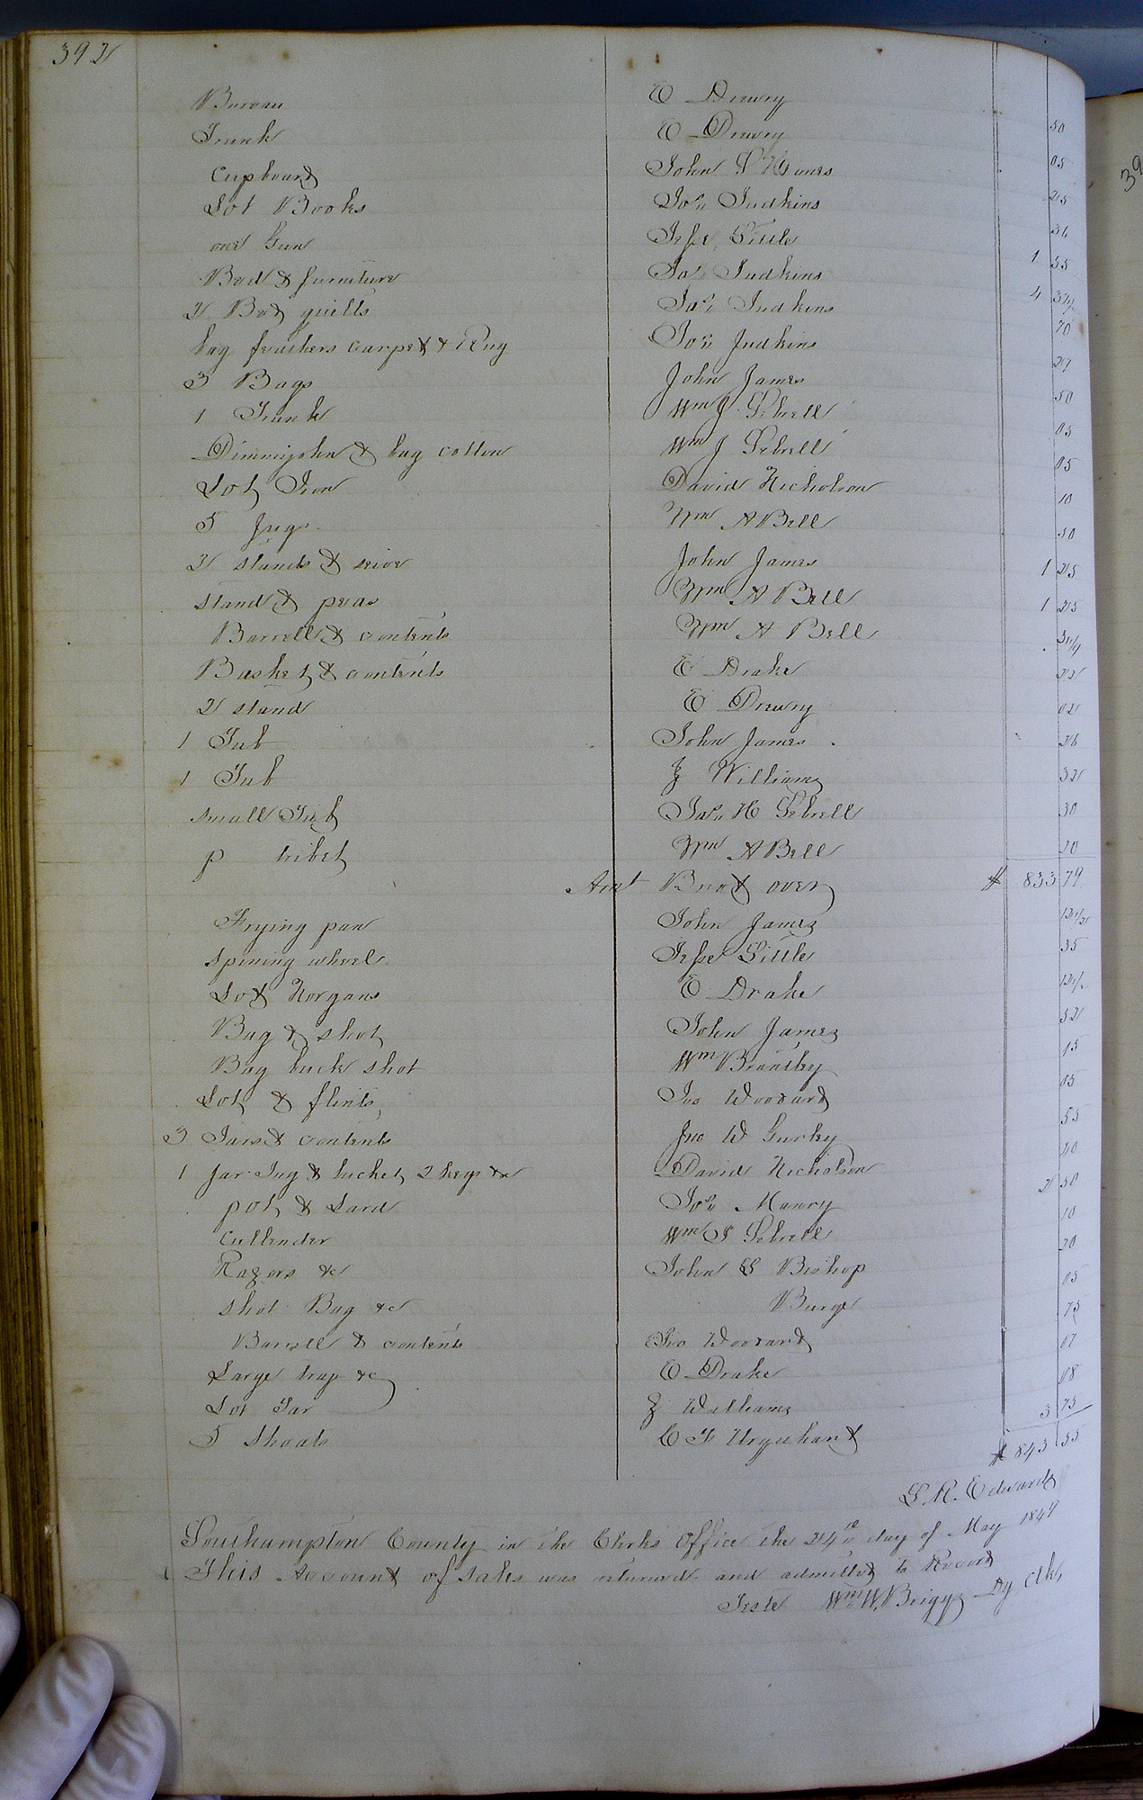 392
Bureau E Drewry
Trunk E Drewry 50
Cupboard John S 05
Lot Books Jos Judkins 25
one Gun Jesse Little 36
Bed & furniture Jos Judkins 1 55
2 Bed quilts Jos Judkins 4
bag feathers carpet & Rug Jos Judkins 70
3 Bags John James
1 Trunk Wm J Sebrell 50
Dimmijohn & bag cotton Wm J Sebrell 05
Lot Iron David Nicholson 05
5 Jugs Wm A Bell 10
3 stands & seive John James 50
stand & peas Wm A Bell 1 25
Barrell & contents Wm A Bell 1 25
Basket & contents E Drake
2 stand E Drewry
1 Tub John James 02
1 Tub J Williams 26
small Tub Jas H Sebrell 32
p Wm A Bell 30
10
Amt Brot over $ 833 79
Frying pan John James 12 1/2
spining wheel Jesse Little 35
Lot E Drake 12 1/2
Bag & shot John James 52
Bag buck shot Wm Brantley 15
Lot & flints Jos Woodard 05
3 Jars & contents Jno W Gurley 55
1 Jar Jug & bucket 2 kegs &c David Nicholson
pot & Lard Jos Maney 2 50
Cullender Wm J Sebrell 10
Razors &c John S Bishop 20
shot Bag &c Barge 05
Barrell & contents Jno Woodard 75
Large trap &c E Drake 07
Lot Tar J Williams 08
5 Shoats C F Urquhart 3 75
$ 843 55
L. R. Edwards
Southampton County in the Clerks Office the 24th day of May 1847
This Account of Sales was returned and admitted to Record
Teste Wm W. Briggs Dy Clk,
39